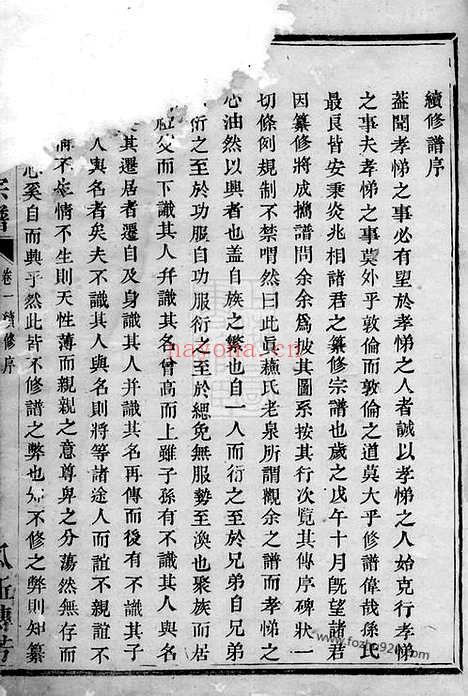 續修譜序
蓋聞孝悌之事必有望於孝悌之人者誠以孝悌之人始克行孝悌
之事夫孝悌之事莫外乎敦倫而敦倫之道莫大乎修譜偉哉孫氏
最良皆安秉炎兆相諸君之纂修宗譜也歲之戊午十月既望諸君
因纂修將成擕譜問余余爲披其圖系按其行次覽其傳序碑狀一
切條列規制不禁喟然曰此眞蘇氏老泉所謂觀余之譜孝悌之
心油然以興者也盖自族之繁也自一人而衍之至於兄弟自兄弟
衍之至於功服自功服衍之至於緦免無服勢至渙也聚族而居
祖父而下識其人幷識其名曾高而上雖子孫有不識其人與名
其遷居者遷自及身識其人并識其名再傳而後有不識其子
人與名者矣夫不識其人與名則將等諸途人而不親誼不
情不生則天性薄而親親之意尊卑之分蕩然無存而
心奚自而興乎然此皆不修譜之弊也知不修之弊則知纂
宗譜
卷一 續修序
nayona.cn
www.fozhu920.com